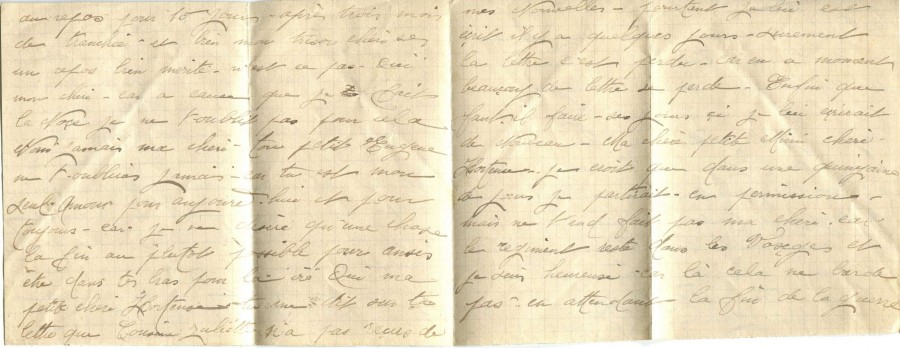 au repos pour 15 jours - après trois mois
de tranchée - et bien mon trésor chéri ses
un repos bien mérité - n'est ce pas - Oui
mon cheri - car a cause que je fait
la Noçe je ne t'oublit pas pour cela
Non jamais ma cheri - ton petit Eugene
ne t'oublieras jamais - car tu est mon
seul Amour pour aujourd'hui et pour
toujours - car je ne désire qu'une chose
la fin au plutôt possible pour ansis
être dans tes bras pour la vie Oui ma
petite chéri Hortense tu me dit sur ta
lettre que Cousine Juliette n'a pas reçus de
mes Nouvelles - pourtant je lui est
écrit il y a quelques jours - surement
la lettre c'est perdue - car en ce moment
beaucoup de lettre se perde - Enfin que
faut-il faire - ses jours çi je lui écrirait
de Nouveau - Ma chère petit Mimi chéri -
Hortense - je croit que dans une quinzaine
de jours je partirait en permission -
mais ne t'en fait pas ma chéri - car
le regiment reste dans les Vosges et
je suis heureuse - car là cela ne barde
pas - en attendant la fin de la guerre